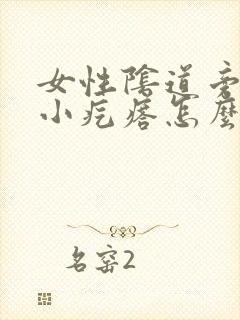 女性陰道
小疙瘩怎麼
名窑2